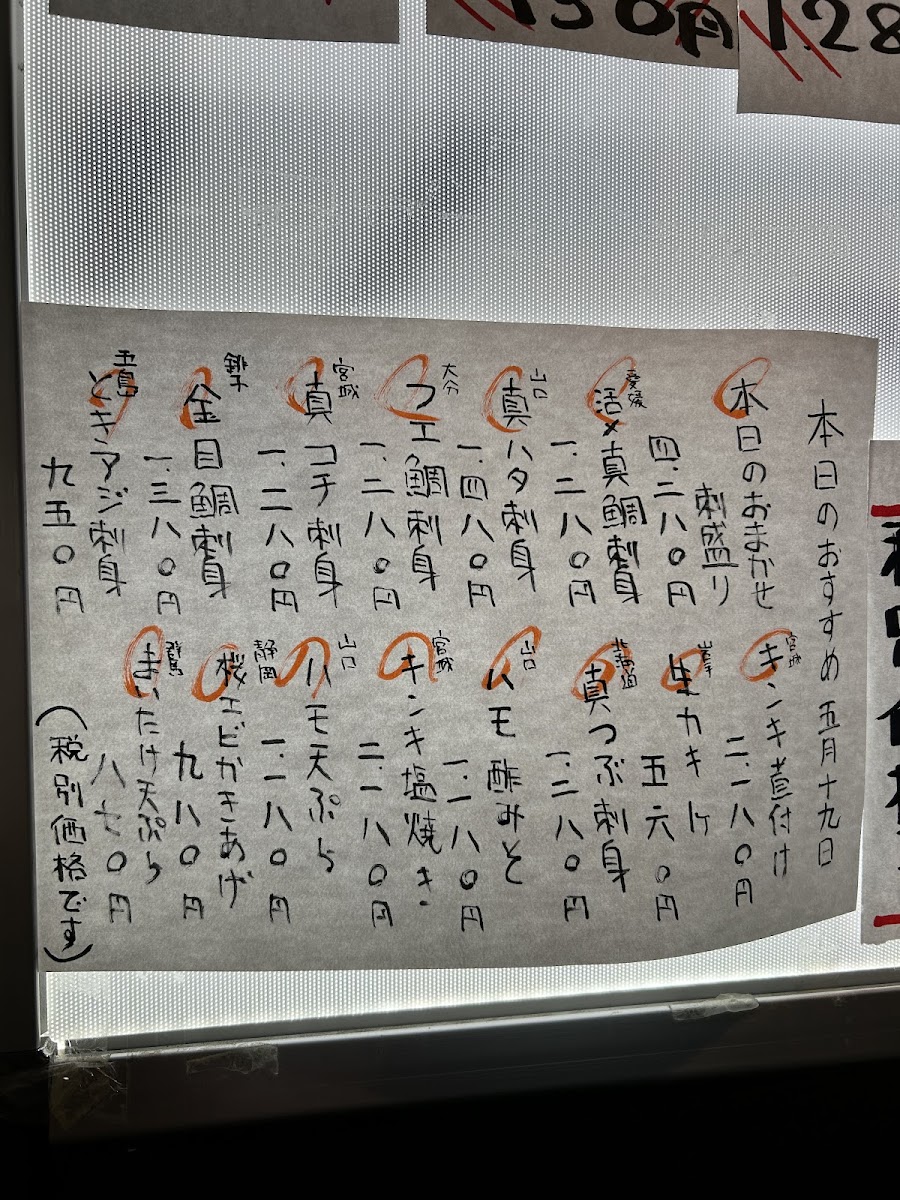 130円
1.28
本日のおすすめ 五月十九日
本日のおまかせ
刺盛り
四.二八〇円
愛媛
活〆真鯛刺身
一.二八〇円
山口
真ハタ刺身
一.四八〇円
大分
フエ鯛刺身
一.二八〇円
宮城
真コチ刺身
一.二八〇円
銚子
金目鯛刺身
一.三八〇円
五島
ときアジ刺身
九五〇円
宮城
キンキ煮付け
二.一八〇円
岩手
生カキ 一ケ
五六〇円
北海道
真つぶ刺身
一.二八〇円
山口
ハモ酢みそ
一.一八〇円
宮城
キンキ塩焼き
二.一八〇円
山口
ハモ天ぷら
一.一八〇円
静岡
桜エビかきあげ
九八〇円
まいたけ天ぷら
八七〇円
(税別価格です)